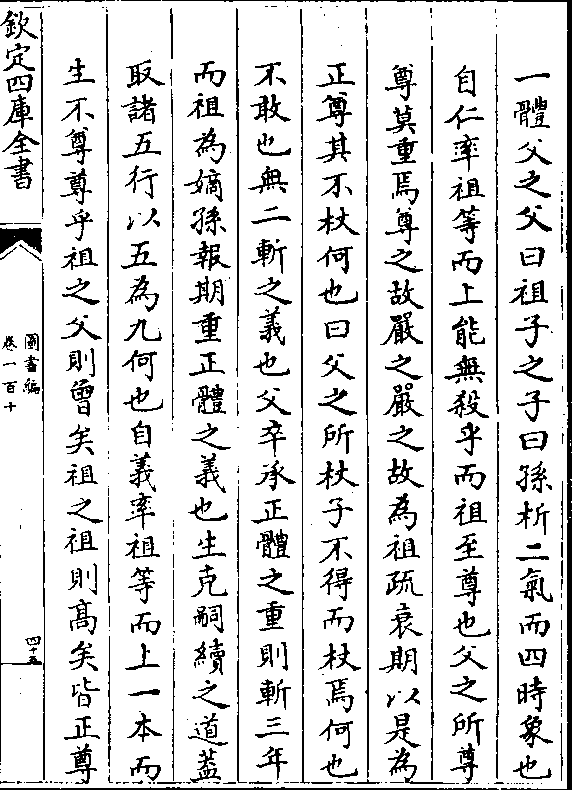 一體父之父曰祖子之子曰孫析二氣而四時象也
自仁率祖等而上能無殺乎而祖至尊也父之所尊
尊莫重焉尊之故嚴之嚴之故為祖疏衰期以是為
正尊其不杖何也曰父之所杖子不得而杖焉何也
不敢也無二斬之義也父卒承正體之重則斬三年
而祖為嫡孫報期重正體之義也生克嗣續之道蓋
取諸五行以五為九何也自義率祖等而上一本而
生不尊尊乎祖之父則曾矣祖之祖則高矣皆正尊
欽定四庫全書
圖書編
卷一百十
四十五